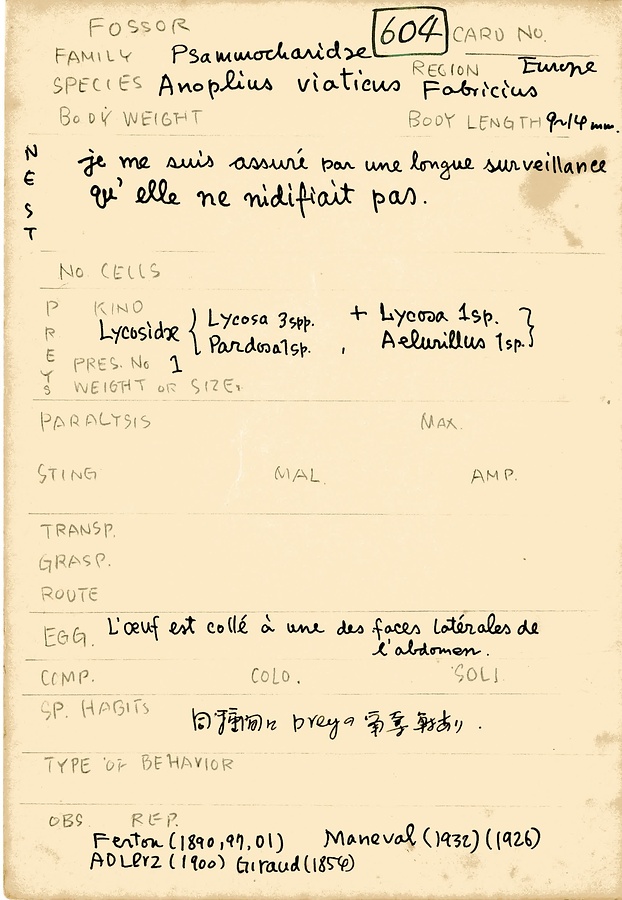 FOSSOR 604 CARD NO.
FAMILY Psammocharidæ REGION Europe
SPECIES Anoplius viaticus Fabricius
BODY WEIGHT BODY LENGTH 9-14 mm.
NEST
je me suis assuré par une longue surveillance
qu'elle ne nidifiait pas.
NO. CELLS
PREYS
KIND
Lycosidæ { Lycosa 3spp. + Lycosa 1sp. }
Pardosa 1sp. , Aelurillus 1sp.
PRES. No 1
WEIGHT OR SIZE.
PARALYSIS MAX.
STING MAL. AMP.
TRANSP.
GRASP.
ROUTE
EGG. L'œuf est collé à une des faces latérales de
l'abdomen.
COMP. COLO. SOLI.
SP. HABITS
同種間に preyの 争奪戦あり.
TYPE OF BEHAVIOR
OBS. REP.
Ferton (1890, 97, 01) Maneval (1932) (1926)
ADLerz (1900) Giraud (1854)